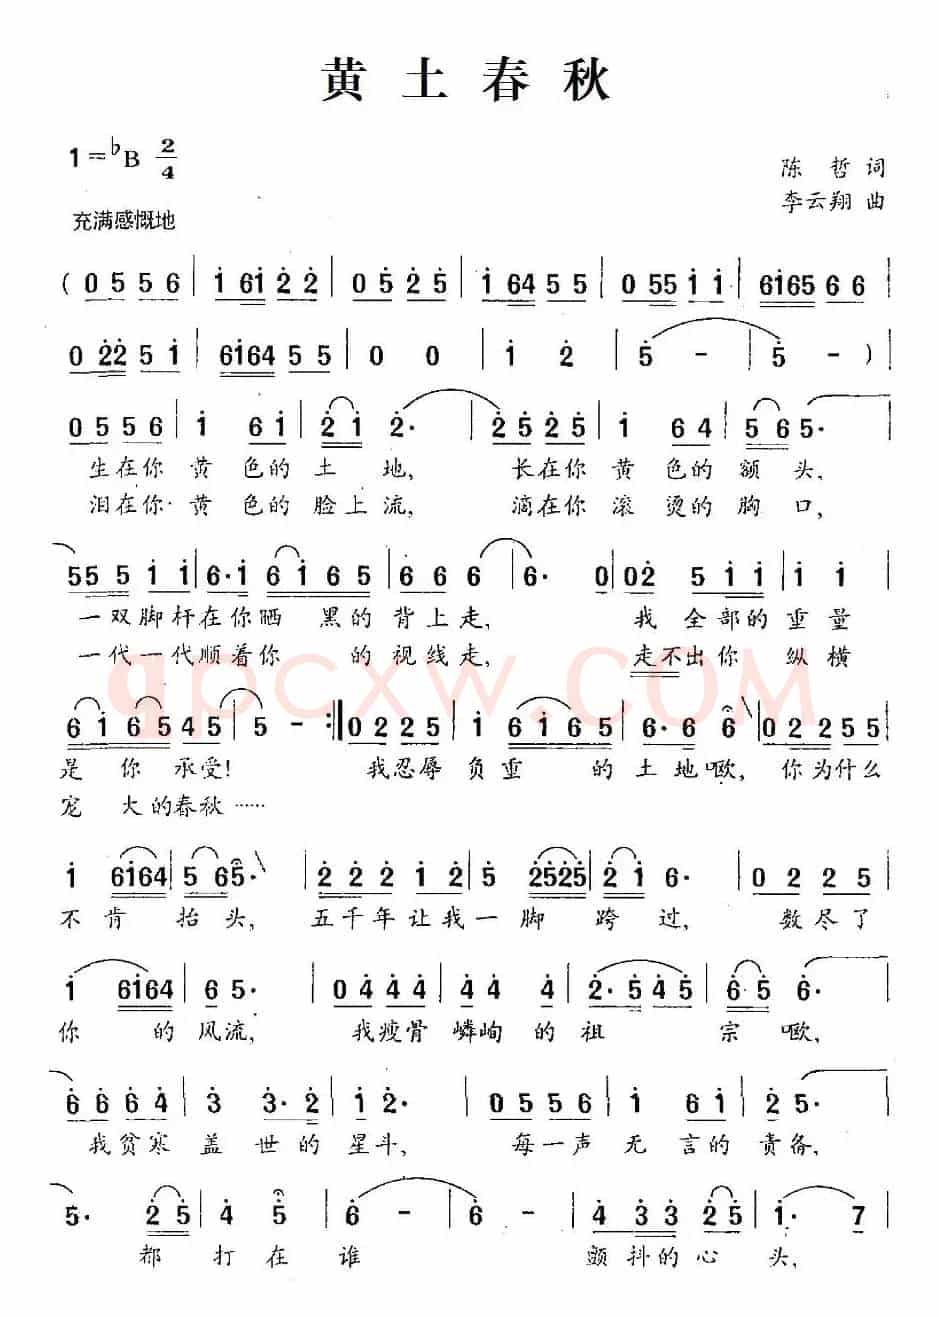 黄土春秋
1=♭B 2/4
陈哲词
李云翔 曲
充满感慨地
( 0 5 5 6 | 1 6 1 2 2 | 0 5 2 5 | 1 6 4 5 5 | 0 5 5 1 1 | 6 1 6 5 6 6
0 2 2 5 1 | 6 1 6 4 5 5 | 0 0 | 1 2 | 5 - | 5 - ) |
0 5 5 6 | 1 6 1 | 2 1 2· | 2 5 2 5 | 1 6 4 | 5 6 5· |
生在你 黄 色的 土 地, 长在你 黄 色的 额 头,
泪在你 黄 色的 脸上流, 滴在你 滚 烫的 胸 口,
5 5 5 1 1 | 6· 1 6 1 6 5 | 6 6 6 | 6· 0 | 0 2 5 1 1 | 1 1
一双脚杆在你晒 黑的 背上走, 我 全部的 重量
一代一代顺着你 的 视线走, 走不出你 纵横
6 1 6 5 4 5 | 5 - :| 0 2 2 5 | 1 6 1 6 5 | 6· 6 6 | 0 2 2 5 5
是 你 承受! 我忍辱 负重 的 土地呕, 你为什么
宠 大的春秋……
1 6 1 6 4 | 5 6 5· | 2 2 2 1 2 | 5 2 5 2 5 | 2 1 6· | 0 2 2 5
不肯 抬头, 五千年让我一脚 跨 过, 数尽了
1 6 1 6 4 | 6 5· | 0 4 4 4 | 4 4 4 | 2· 5 4 5 | 6 5 6· |
你 的风流, 我瘦骨 嶙峋 的 祖 宗 呕,
6 6 6 4 | 3 3· 2 | 1 2· | 0 5 5 6 | 1 6 1 | 2 5· |
我贫寒 盖 世的 星斗, 每一声 无 言的 责备,
5· 2 5 | 4 5 | 6 - | 6 - | 4 3 3 2 5 | 1· 7 |
都 打 在 谁 颤 抖的 心 头,
qpcxw.com